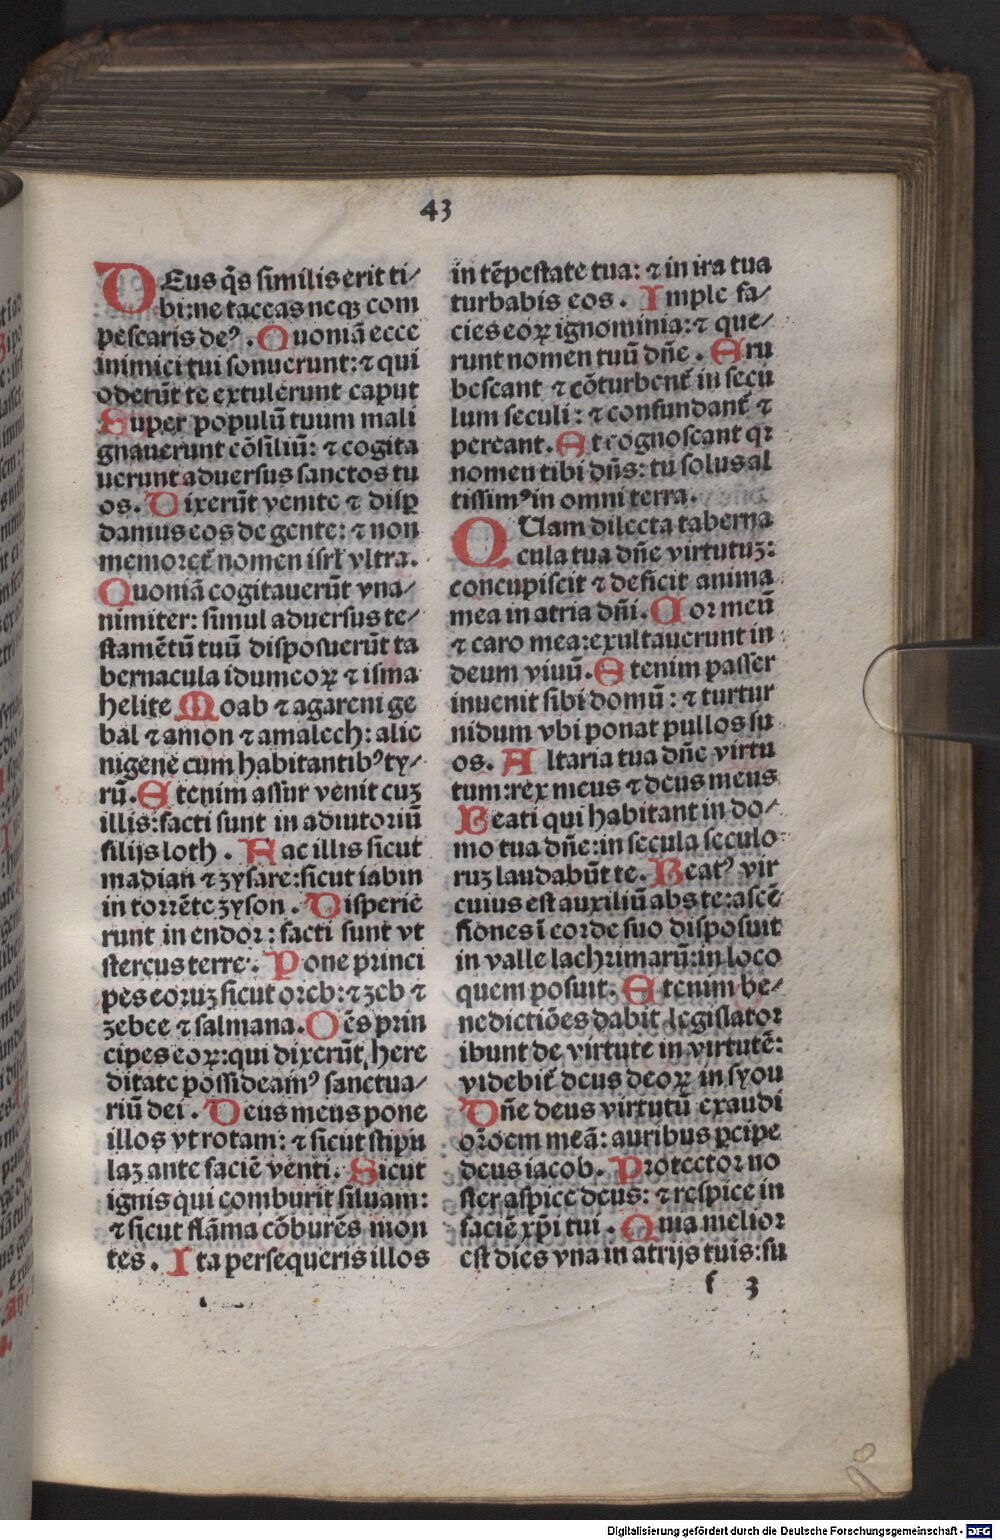 43
DEus q̄s similis erit ti⸗
bi: ne taceas neqꝫ com
pescaris deꝰ. Quoniā ecce
inimici tui sonuerunt: ⁊ qui
oderūt te extulerunt caput
Super populū tuum mali
gnauerunt cōsiliū: ⁊ cogita
uerunt aduersus sanctos tu
os. Dixerūt venite ⁊ disꝑ
damus eos de gente: ⁊ non
memoret̄ nomen isrl̄ vltra.
Quoniā cogitauerūt vna⸗
nimiter: simul aduersus te⸗
stamētū tuū disposuerūt ta
bernacula idumeoꝝ ⁊ isma
helite Moab ⁊ agareni ge
bal ⁊ amon ⁊ amalech: alie
nigene cum habitantibꝰ ty⸗
rū. Etenim assur venit cuꝫ
illis: facti sunt in adiutoriū
filijs loth. Fac illis sicut
madian ⁊ zysare: sicut iabin
in torrēte zyson. Disperie
runt in endor: facti sunt vt
stercus terre. Pone princi
pes eoruꝫ sicut oreb: ⁊ zeb ⁊
zebee ⁊ salmana. Oēs prin
cipes eoꝝ: qui dixerūt here
ditate possideamꝰ sanctua⸗
riū dei. Deus meus pone
illos vt rotam: ⁊ sicut stipu
laꝫ ante faciē venti. Sicut
ignis qui comburit siluam:
⁊ sicut flāma cōburēs mon
tes. Ita persequeris illos
in tēpestate tua: ⁊ in ira tua
turbabis eos. Imple fa⸗
cies eoꝝ ignominia: ⁊ que⸗
runt nomen tuū dn̄e. Eru
bescant ⁊ cōturbent̄ in secu
lum seculi: ⁊ confundant̄ ⁊
pereant. Et cognoscant qꝛ
nomen tibi dn̄s: tu solus al
tissimꝰ in omni terra.
QUam dilecta taberna
cula tua dn̄e virtutuꝫ:
concupiscit ⁊ deficit anima
mea in atria dn̄i. Cor meū
⁊ caro mea: exultauerunt in
deum viuū. Etenim passer
inuenit sibi domū: ⁊ turtur
nidum vbi ponat pullos su
os. Altaria tua dn̄e virtu
tum: rex meus ⁊ deus meus
Beati qui habitant in do⸗
mo tua dn̄e: in secula seculo
ruꝫ laudabūt te. Beatꝰ vir
cuius est auxiliū abs te: ascē
siones ī corde suo disposuit
in valle lachrimarū: in loco
quem posuit. Etenim be⸗
nedictiōes dabit legislator
ibunt de virtute in virtutē:
videbit̄ deus deoꝝ in syon
Dn̄e deus virtutū exaudi
orōem meā: auribus ꝑcipe
deus iacob. Protector no
ster aspice deus: ⁊ respice in
faciē xp̄i tui. Quia melior
est dies vna in atrijs tuis: su
f 3
Digitalisierung gefördert durch die Deutsche Forschungsgemeinschaft - DFG